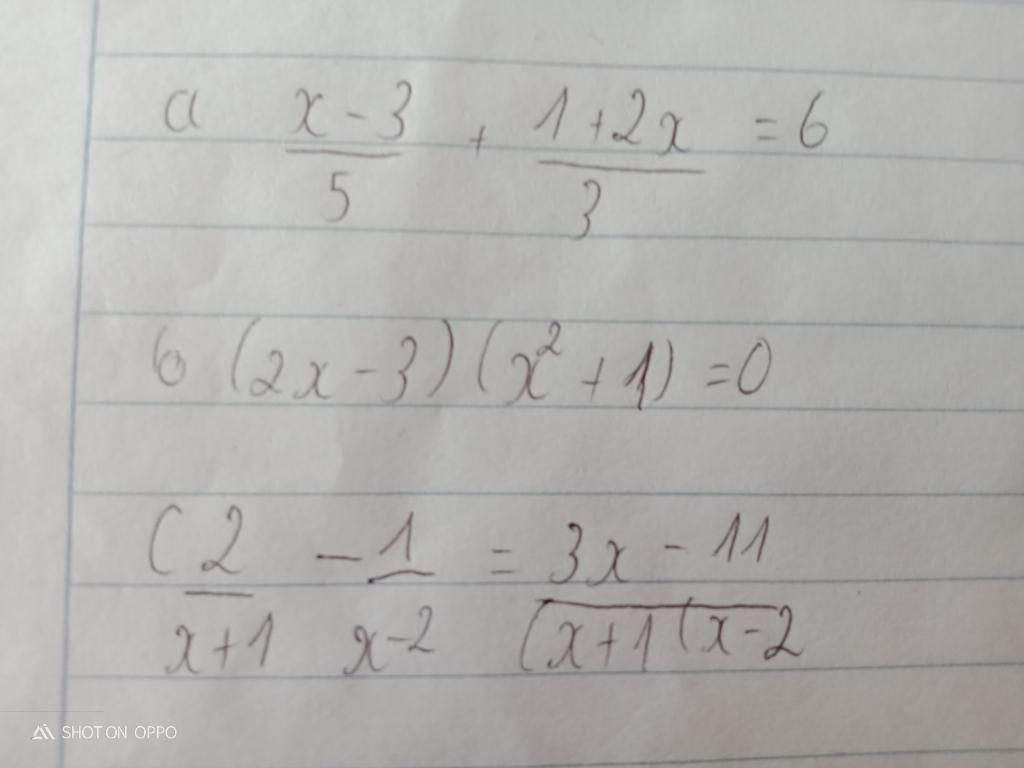 a x-3/5 + 1+2x/3 = 6
b (2x-3)(x²+1)=0
C 2/x+1 - 1/x-2 = 3x-11/(x+1(x-2
SHOT ON OPPO